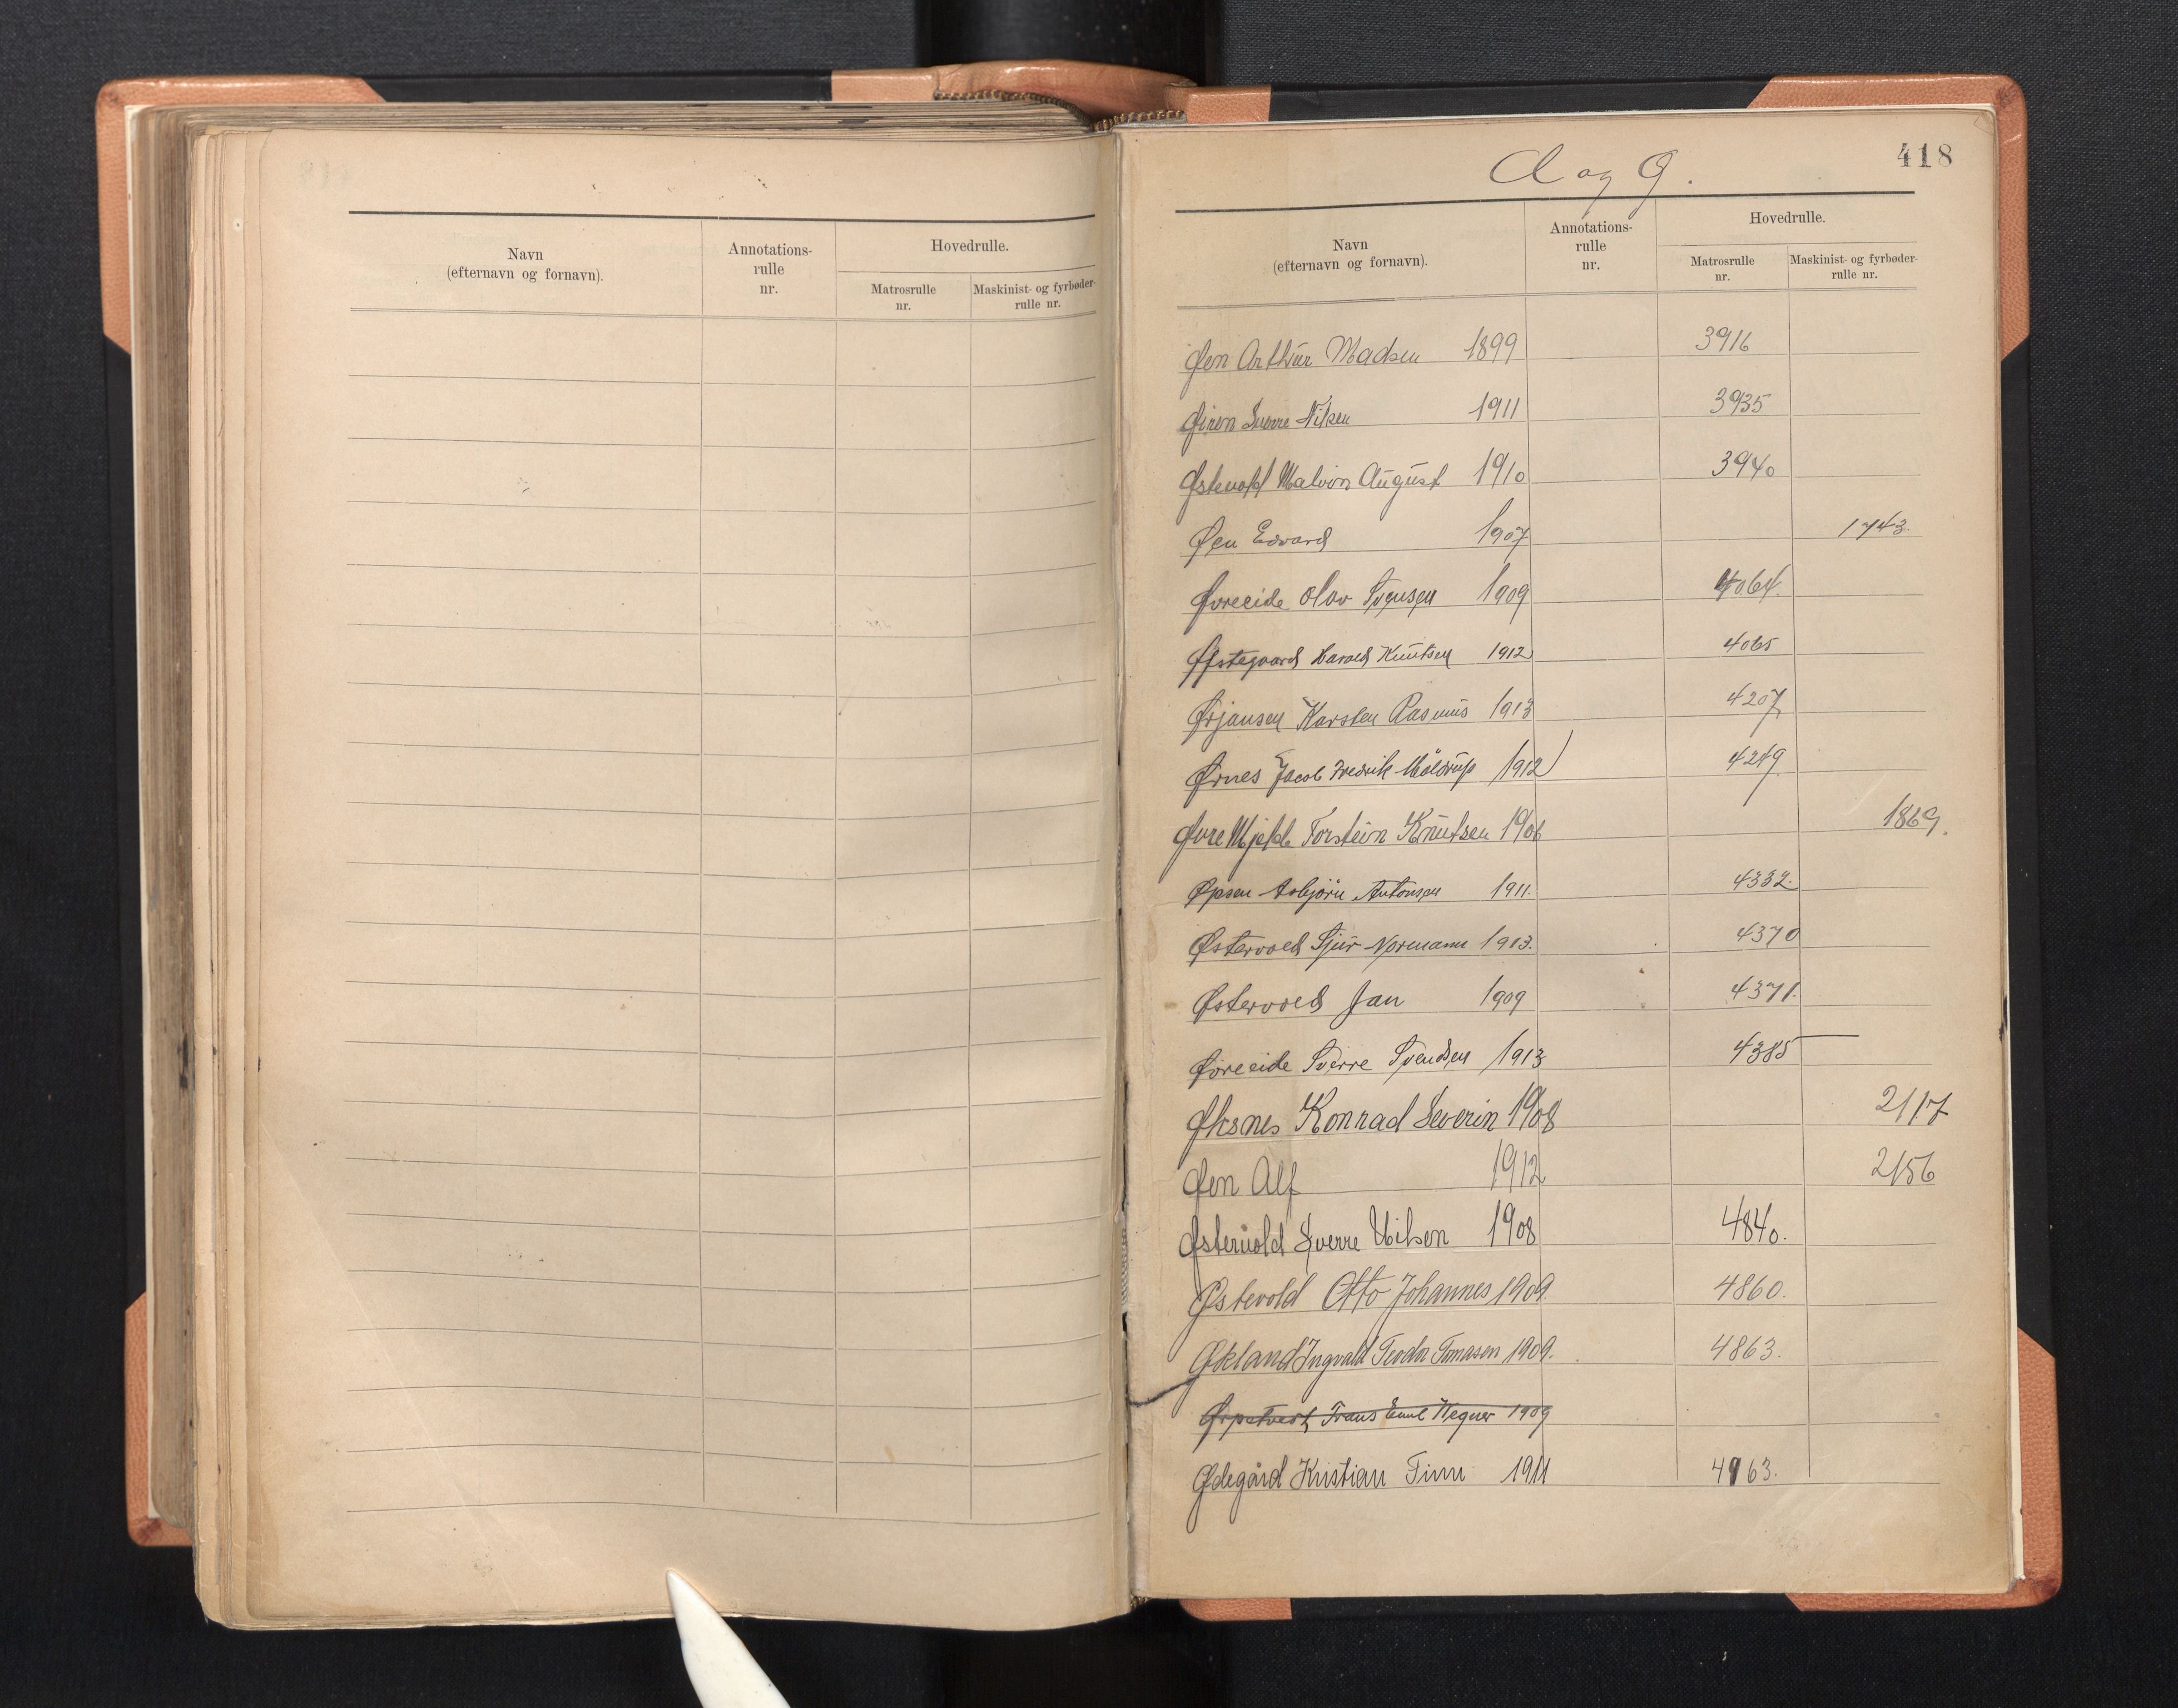 Navn
(efternavn og fornavn).
Annotations-
rulle
nr.
Hovedrulle.
Matrosrulle
nr.
Maskinist- og fyrbøder-
rulle nr.
418
Ø.
Navn
(efternavn og fornavn).
Annotations-
rulle
nr.
Hovedrulle.
Matrosrulle
nr.
Maskinist- og fyrbøder-
rulle nr.
Øen Arthur Madsen 1899 3916
Sverre Nilsen 1911 3935
Østevold Malvin August 1910 3940
Øen Edvard 1907 1743
Øvreeide Olav Svensen 1909 4064.
Østegaard Harald Knutsen 1912 4065
Ørjansen Karsten Rasmus 1913 4207
Ørnes Jacob Fredrik Møldrup 1912 4249
Øvre Mjelde Torstein Knutsen 1906 1869.
Øpsen Asbjørn Antonsen 1911. 4332.
Østervold Sjur Normann 1913. 4370
Østervold Jan 1909 4371.
Øvreeide Sverre Svendsen 1913 4385
Øksnes Konrad Severin 1908 2117
Øen Alf 1912 2156
Østervold Sverre Nilsen 1908 4840.
Østevold Otto Johannes 1909 4860.
Økland Ingvald Teodor Tomasen 1909. 4863.
Frans Emil Wegner 1909
Ødegård Kristian Finn 1911 4963.